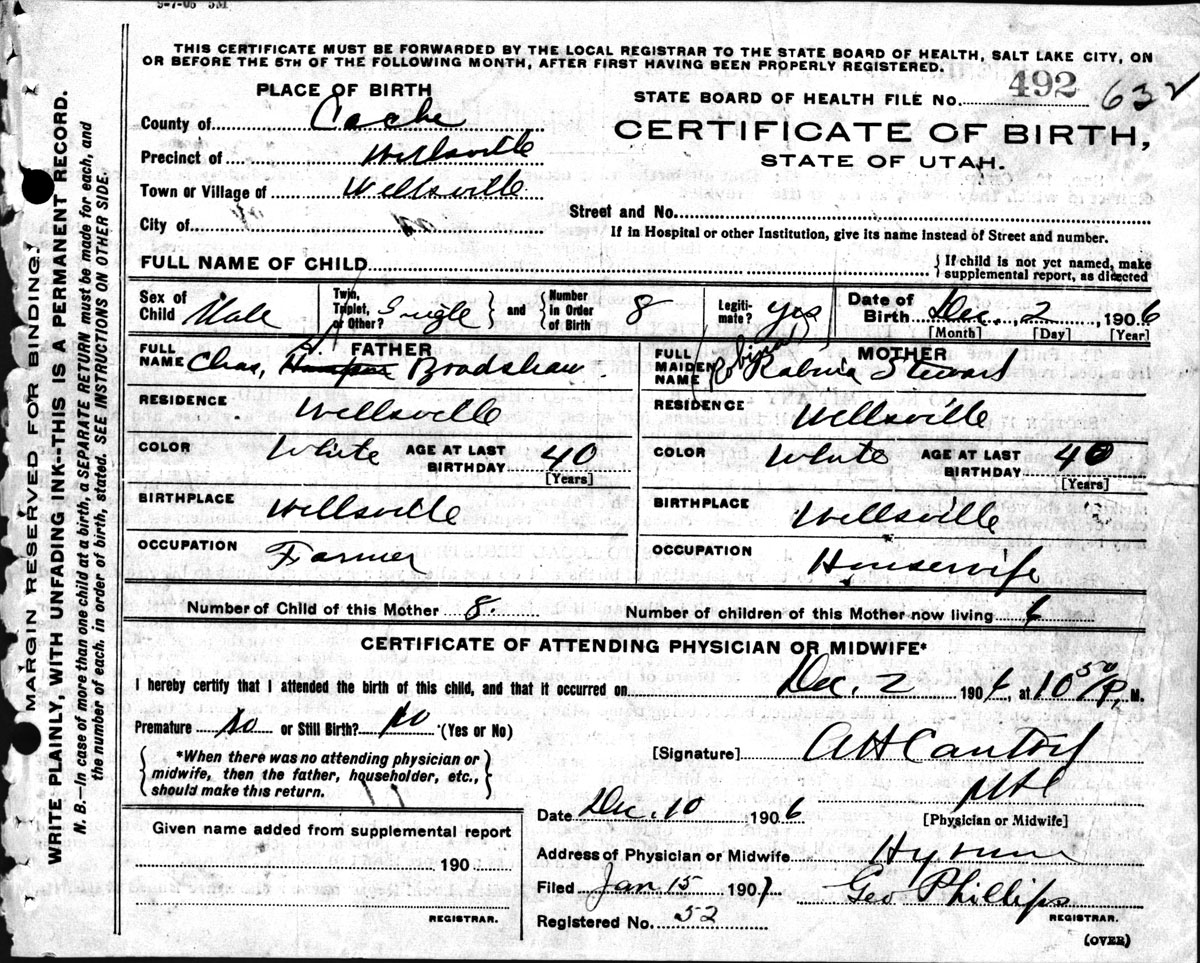 9-7-06 5M
THIS CERTIFICATE MUST BE FORWARDED BY THE LOCAL REGISTRAR TO THE STATE BOARD OF HEALTH, SALT LAKE CITY, ON
OR BEFORE THE 5TH OF THE FOLLOWING MONTH, AFTER FIRST HAVING BEEN PROPERLY REGISTERED.
PLACE OF BIRTH
STATE BOARD OF HEALTH FILE No. 492 632
County of Cache
CERTIFICATE OF BIRTH,
Precinct of Wellsville
STATE OF UTAH.
Town or Village of Wellsville
Street and No.
City of
If in Hospital or other Institution, give its name instead of Street and number.
FULL NAME OF CHILD
{ If child is not yet named, make
supplemental report, as directed
Sex of Child Male
Twin, Triplet, or Other? Single } and { Number in Order of Birth 8
Legitimate? yes
Date of Birth Dec. 2, 1906
[Month] [Day] [Year]
FATHER
FULL NAME Chas, S. Bradshaw
RESIDENCE Wellsville
COLOR White AGE AT LAST BIRTHDAY 40
[Years]
BIRTHPLACE Wellsville
OCCUPATION Farmer
MOTHER
FULL MAIDEN NAME Robina Stewart
RESIDENCE Wellsville
COLOR White AGE AT LAST BIRTHDAY 40
[Years]
BIRTHPLACE Wellsville
OCCUPATION Housewife
Number of Child of this Mother 8. Number of children of this Mother now living 6
CERTIFICATE OF ATTENDING PHYSICIAN OR MIDWIFE*
I hereby certify that I attended the birth of this child, and that it occurred on Dec. 2 1906, at 10 50 P. M.
Premature No or Still Birth? No (Yes or No)
[Signature] A H Cantril
*When there was no attending physician or
midwife, then the father, householder, etc.,
should make this return.
Date Dec. 10 1906
[Physician or Midwife]
Given name added from supplemental report
190
REGISTRAR.
Address of Physician or Midwife Hyrum
Filed Jan 15 1907 Geo Phillips
REGISTRAR.
Registered No. 52
(OVER)
MARGIN RESERVED FOR BINDING.
WRITE PLAINLY, WITH UNFADING INK--THIS IS A PERMANENT RECORD.
N. B.—In case of more than one child at a birth, a SEPARATE RETURN must be made for each, and
the number of each, in order of birth, stated. SEE INSTRUCTIONS ON OTHER SIDE.